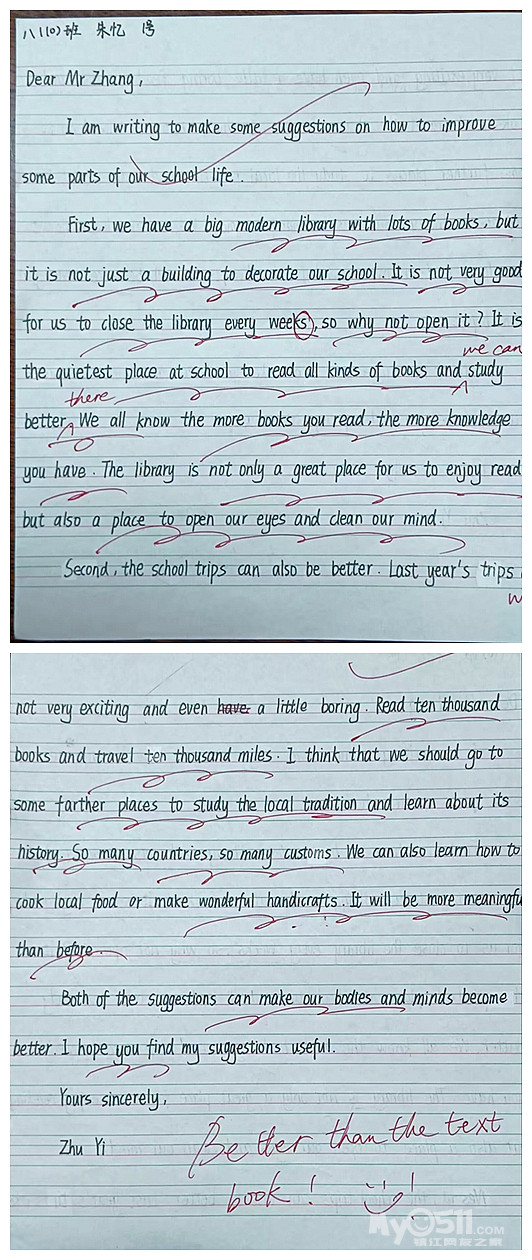 八(10)班 朱忆 1号
Dear Mr Zhang,
I am writing to make some suggestions on how to improve
some parts of our school life.
First, we have a big modern library with lots of books, but
it is not just a building to decorate our school. It is not very good
for us to close the library every weeks, so why not open it? It is
we can
the quietest place at school to read all kinds of books and study
there
better. We all know the more books you read, the more knowledge
you have. The library is not only a great place for us to enjoy read
but also a place to open our eyes and clean our mind.
Second, the school trips can also be better. Last year's trips
w
not very exciting and even have a little boring. Read ten thousand
books and travel ten thousand miles. I think that we should go to
some farther places to study the local tradition and learn about its
history. So many countries, so many customs. We can also learn how to
cook local food or make wonderful handicrafts. It will be more meaningfu
than before.
Both of the suggestions can make our bodies and minds become
better. I hope you find my suggestions useful.
Yours sincerely,
Zhu Yi
Better than the text
book!
My0511.com
镇江网友之家